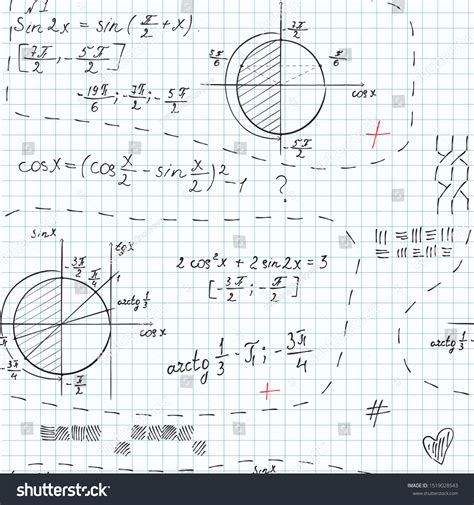 N 1
Sin2x = sin(π/2 + x).
[-7π/2, -5π/2]
-19π/6; -7π/2; -5π/2
5π/6
π/6
cosx
-5π/2
cosx = (cos x/2 - sin x/2)² - 1 ?
sinx
tgx
-3π/2
π/4
1
arctg 1/3
cosx
-3π/4
-π/2
2cos²x + 2sin2x = 3
[-3π/2; -π/2]
arctg 1/3
arctg 1/3 - π; -3π/4
#
sinx
shutterstock
IMAGE ID: 1519028543
www.shutterstock.com